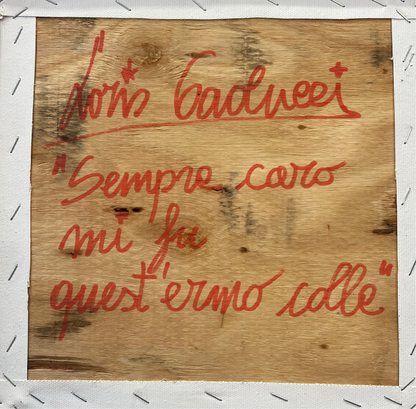 Loris Gaducci
"Sempre caro
mi fu
quest'ermo colle"